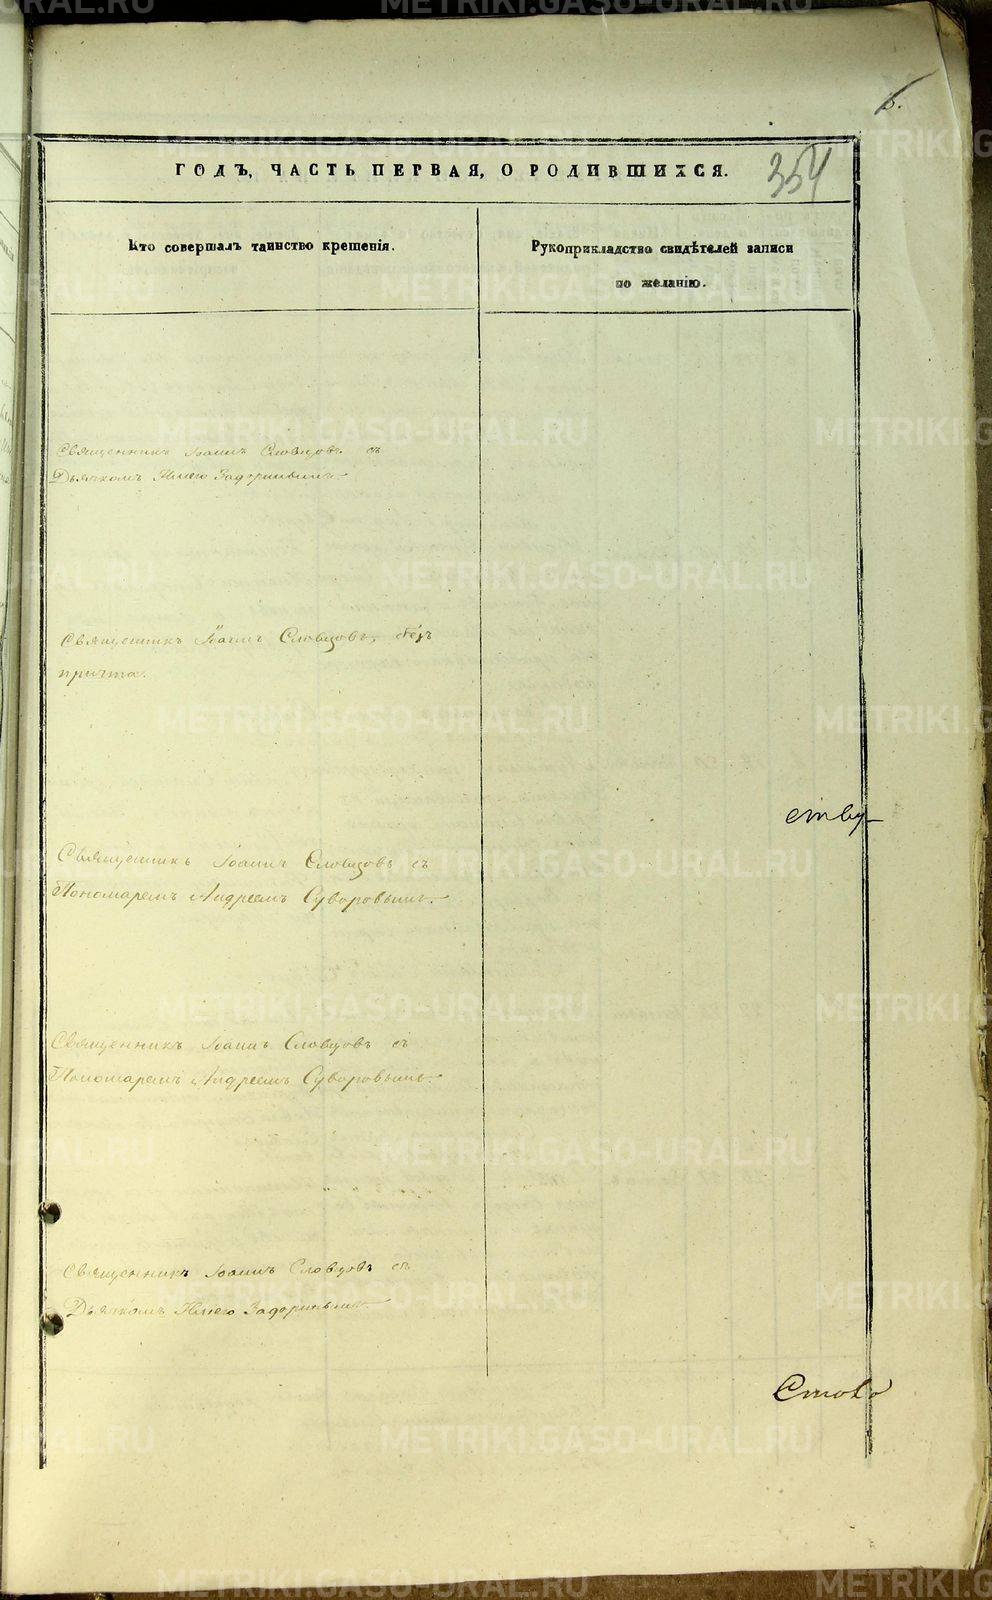 5.
354
ГОДЪ, ЧАСТЬ ПЕРВАЯ, О РОДИВШИХСЯ.
Кто совершалъ таинство крещенія.
Рукоприкладство свидѣтелей записи
по желанію.
Священникъ Іоаннъ Словцовъ съ
Дьячкомъ Задоринымъ.
Священникъ Іоаннъ Словцовъ, безъ
причта.
ству
Священникъ Іоаннъ Словцовъ съ
Пономаремъ Андреемъ Суворовымъ.
Священникъ Іоаннъ Словцовъ съ
Пономаремъ Андреемъ Суворовымъ.
Священникъ Іоаннъ Словцовъ съ
Дьячкомъ Задоринымъ.
METRIKI.GASO-URAL.RU